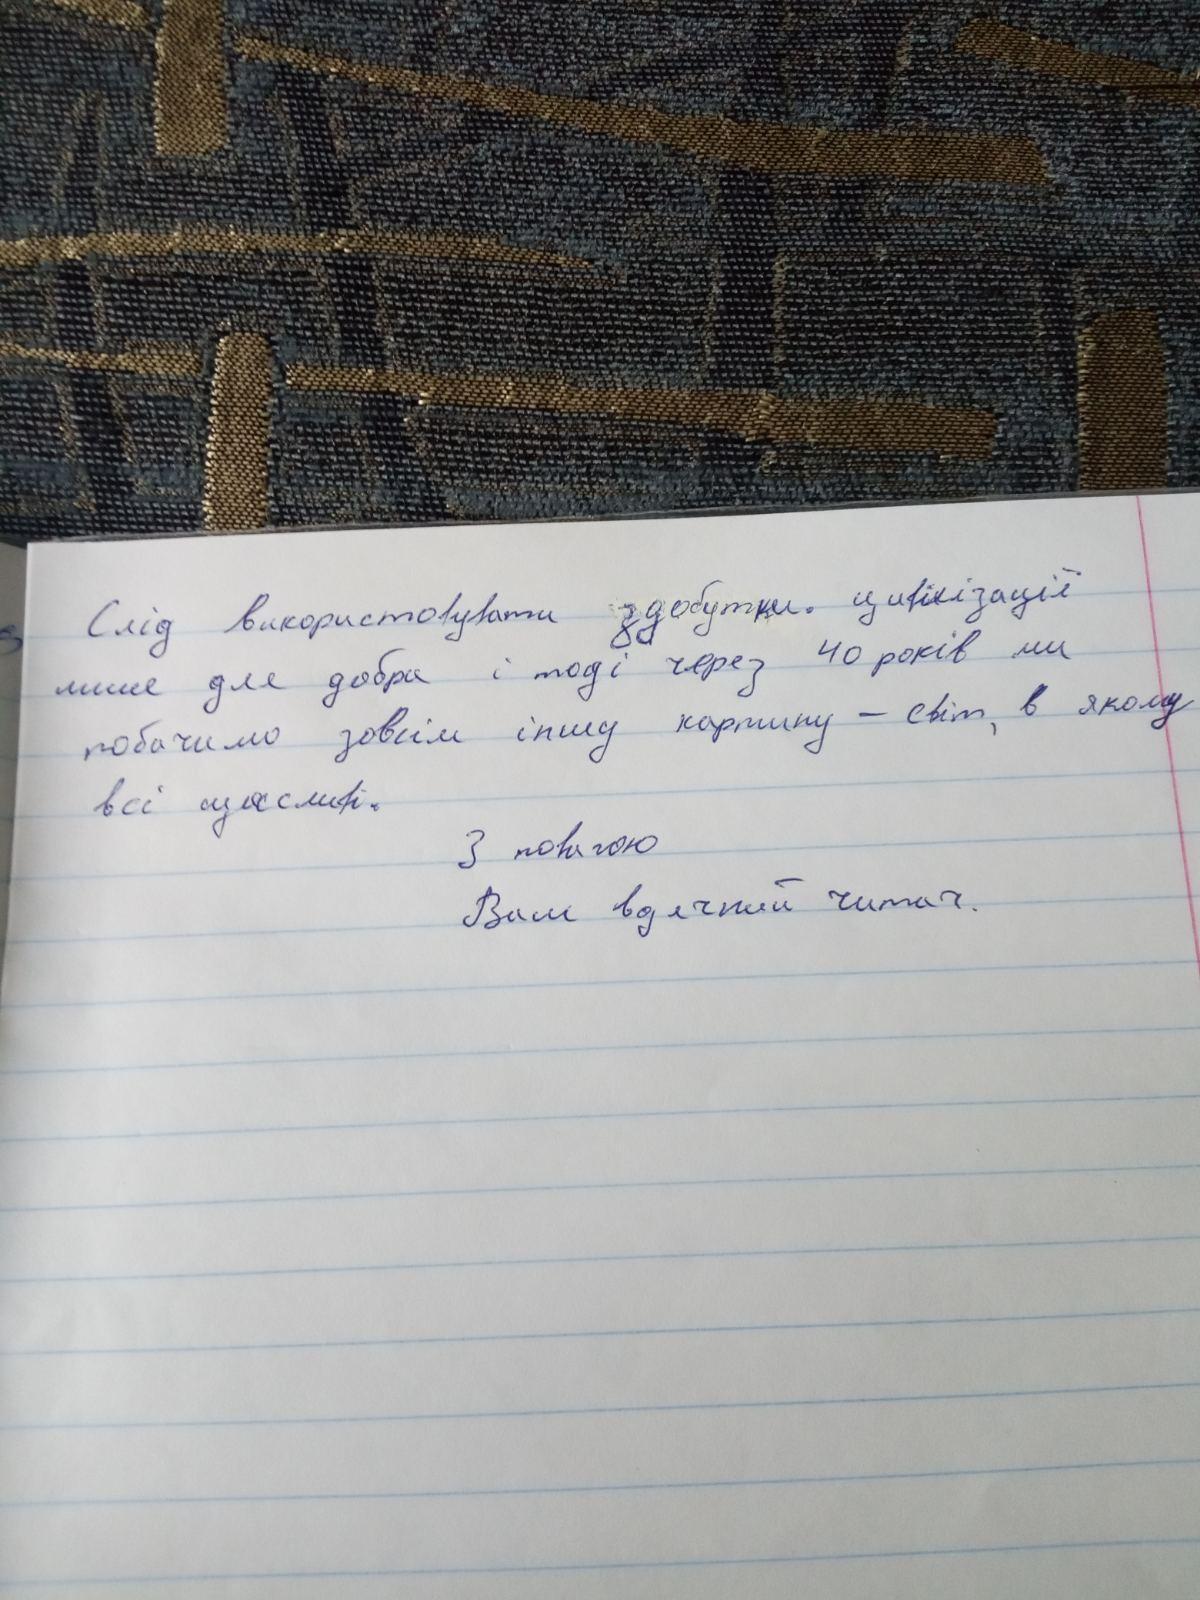 Слід використовувати здобутки. цивілізації
лише для добра і тоді через 40 років ми
побачимо зовсім іншу картину – світ, в якому
всі щасливі.
З повагою
Ваш вдячний читач.